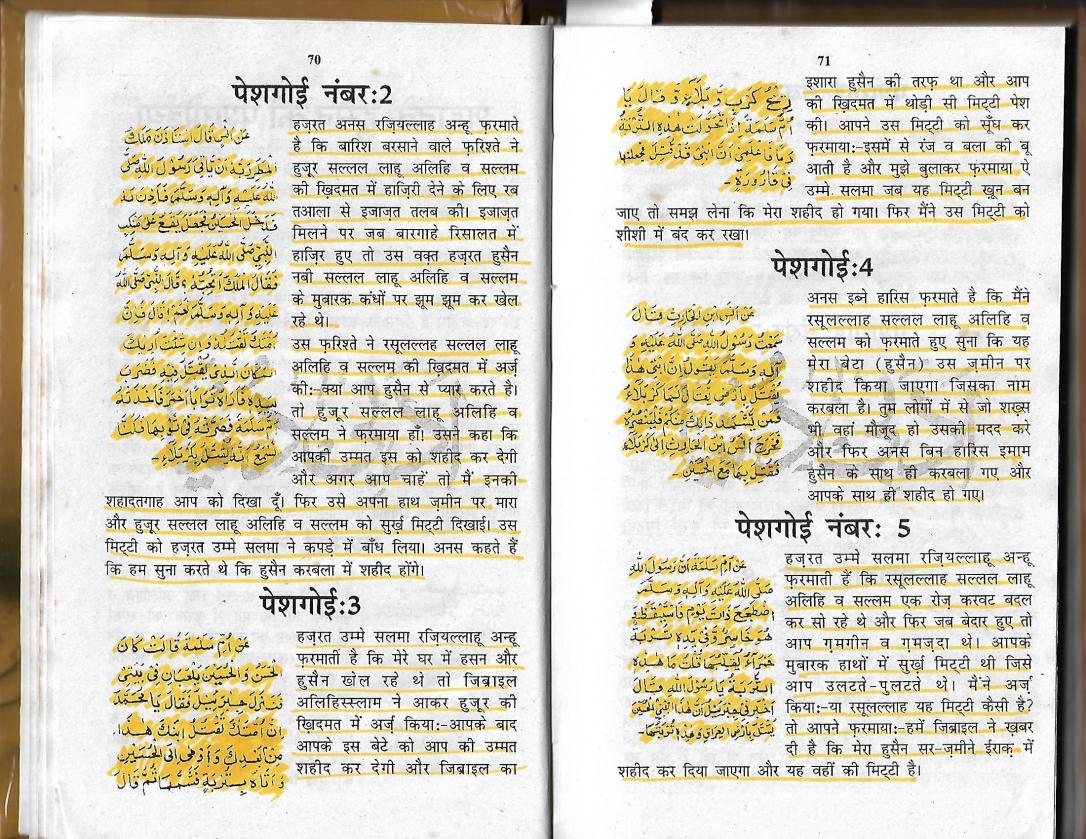 70
पेशगोई नंबर:2
عن انس قال استاذن ملك
المطر ربه ان ياتى رسول الله صلى
الله عليه وآله وسلم فاذن له
فدخل الحسين فجعل يقع على
النبى صلى الله عليه وآله وسلم
فقال الملك اتحبه؟ قال النبى صلى الله
عليه وآله وسلم نعم! قال فان
امتك تقتله وان شئت اريتك
المكان الذى يقتل فيه فضرب
بيده فاراه ترابا احمر فاخذته
ام سلمة فصرته فى ثوبها قال كنا
نسمع انه يقتل بكربلاء
हज़रत अनस रज़ियल्लाह अन्हू फ़रमाते
है कि बारिश बरसाने वाले फ़रिश्ते ने
हुज़ूर सल्लल लाहू अलिहि व सल्लम
की ख़िदमत में हाज़िरी देने के लिए रब
तआला से इजाज़त तलब की। इजाज़त
मिलने पर जब बारगाहे रिसालत में
हाज़िर हुए तो उस वक्त हज़रत हुसैन
नबी सल्लल लाहू अलिहि व सल्लम
के मुबारक कंधों पर झूम झूम कर खेल
रहे थे।
उस फ़रिश्ते ने रसूलल्लह सल्लल लाहू
अलिहि व सल्लम की ख़िदमत में अर्ज़
की:-क्या आप हुसैन से प्यार करते है।
तो हुजूर सल्लल लाहू अलिहि व
सल्लम ने फ़रमाया हाँ! उसने कहा कि
आपकी उम्मत इस को शहीद कर देगी
और अगर आप चाहें तो मैं इनकी
शहादतगाह आप को दिखा दूँ। फिर उसे अपना हाथ ज़मीन पर मारा
और हुजूर सल्लल लाहू अलिहि व सल्लम को सुर्ख़ मिट्टी दिखाई। उस
मिट्टी को हज़रत उम्मे सलमा ने कपड़े में बाँध लिया। अनस कहते हैं
कि हम सुना करते थे कि हुसैन करबला में शहीद होंगे।
पेशगोई:3
عن ام سلمة قالت كان
الحسن والحسين يلعبان فى بيتى
فنزل جبريل فقال يا محمد
ان امتك تقتل ابنك هذا
من بعدك واومى الى الحسين
واتاه بتربة فشمها ثم قال
हज़रत उम्मे सलमा रज़ियल्लाहू अन्हू
फ़रमातीं है कि मेरे घर में हसन और
हुसैन खेल रहे थे तो जिब्राइल
अलिहिस्स्लाम ने आकर हुजूर की
ख़िदमत में अर्ज़ किया:-आपके बाद
आपके इस बेटे को आप की उम्मत
शहीद कर देगी और जिब्राइल का
71
ريح كرب وبلاء وقال يا
ام سلمة اذا تحولت هذه التربة
دما فاعلمى ان ابنى قد قتل فجعلتها
فى قارورة۔
इशारा हुसैन की तरफ़ था और आप
की ख़िदमत में थोड़ी सी मिट्टी पेश
की। आपने उस मिट्टी को सूँघ कर
फ़रमाया:-इसमें से रंज व बला की बू
आती है और मुझे बुलाकर फ़रमाया ऐ
उम्मे सलमा जब यह मिट्टी ख़ून बन
जाए तो समझ लेना कि मेरा शहीद हो गया। फिर मैंने उस मिट्टी को
शीशी में बंद कर रखा।
पेशगोई:4
عن انس ابن الحارث قال
سمعت رسول الله صلى الله عليه و
آله وسلم يقول ان ابنى هذا
يقتل بارض يقال لها كربلاء
فمن يشهد ذالك منكم فلينصره
فخرج انس ابن الحارث الى كربلاء
فقتل بها مع الحسين۔
अनस इब्ने हारिस फ़रमाते है कि मैंने
रसूलल्लाह सल्लल लाहू अलिहि व
सल्लम को फ़रमाते हुए सुना कि यह
मेरा बेटा (हुसैन) उस ज़मीन पर
शहीद किया जाएगा जिसका नाम
करबला है। तुम लोगों में से जो शख़्स
भी वहां मौजूद हो उसकी मदद करे
और फिर अनस बिन हारिस इमाम
हुसैन के साथ ही करबला गए और
आपके साथ ही शहीद हो गए।
पेशगोई नंबर: 5
عن ام سلمة ان رسول الله
صلى الله عليه وآله وسلم
اضطجع ذات يوم فاستيقظ
هو خاثر وفى يده تربة
حمراء يقلبها قلت ما هذه
التربة يا رسول الله قال
اخبرنى جبريل ان هذا ابنى الحسين
يقتل بارض العراق وهذه تربتها۔
हज़रत उम्मे सलमा रज़ियल्लाहू अन्हू
फ़रमाती हैं कि रसूलल्लाह सल्लल लाहू
अलिहि व सल्लम एक रोज़ करवट बदल
कर सो रहे थे और फिर जब बेदार हुए तो
आप ग़मगीन व ग़मज़दा थे। आपके
मुबारक हाथों में सुर्ख़ मिट्टी थी जिसे
आप उलटते-पुलटते थे। मैंने अर्ज़
किया:-या रसूलल्लाह यह मिट्टी कैसी है?
तो आपने फ़रमाया:-हमें जिब्राइल ने ख़बर
दी है कि मेरा हुसैन सर-ज़मीने ईराक़ में
शहीद कर दिया जाएगा और यह वहीं की मिट्टी है।